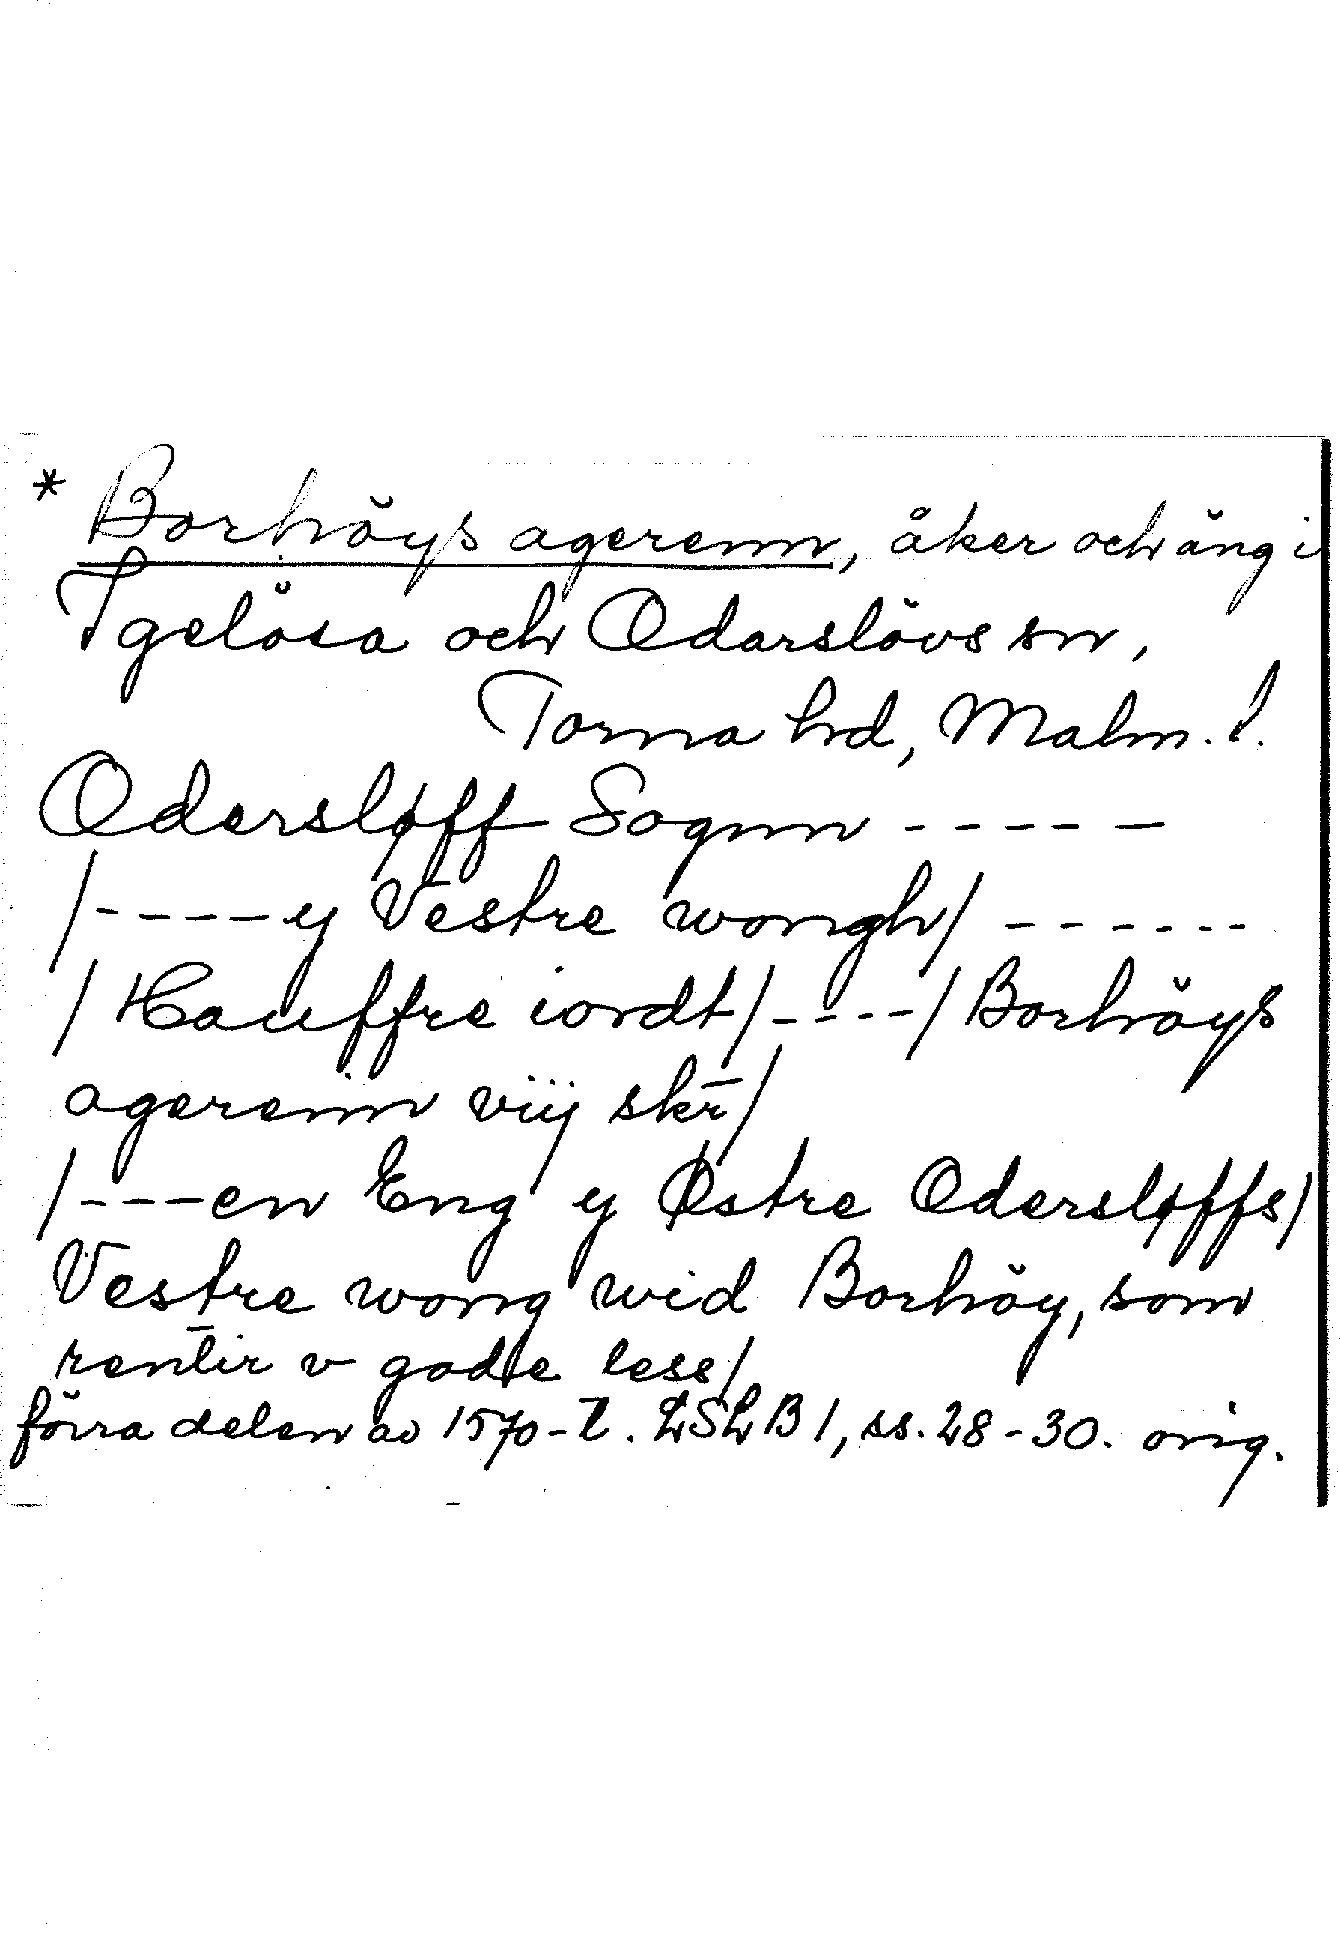 * Borhöys agerenn, åker och äng i
Igelösa och Odarslövs sn,
Torna hd, Malm. l.
Odersløff Sognn - - - - - -
/- - - - - y Vestre wongh/ - - - - - -
/ Hauffre iordt/ - - - - / Borhöys
agerenn viij skr̄/
/- - - - en Eng y Østre Odersløffs/
Vestre wong wid Borhöy, som
rentir v gode less/
förra delen av 1570-t. LSLB 1, ss. 28-30. orig.